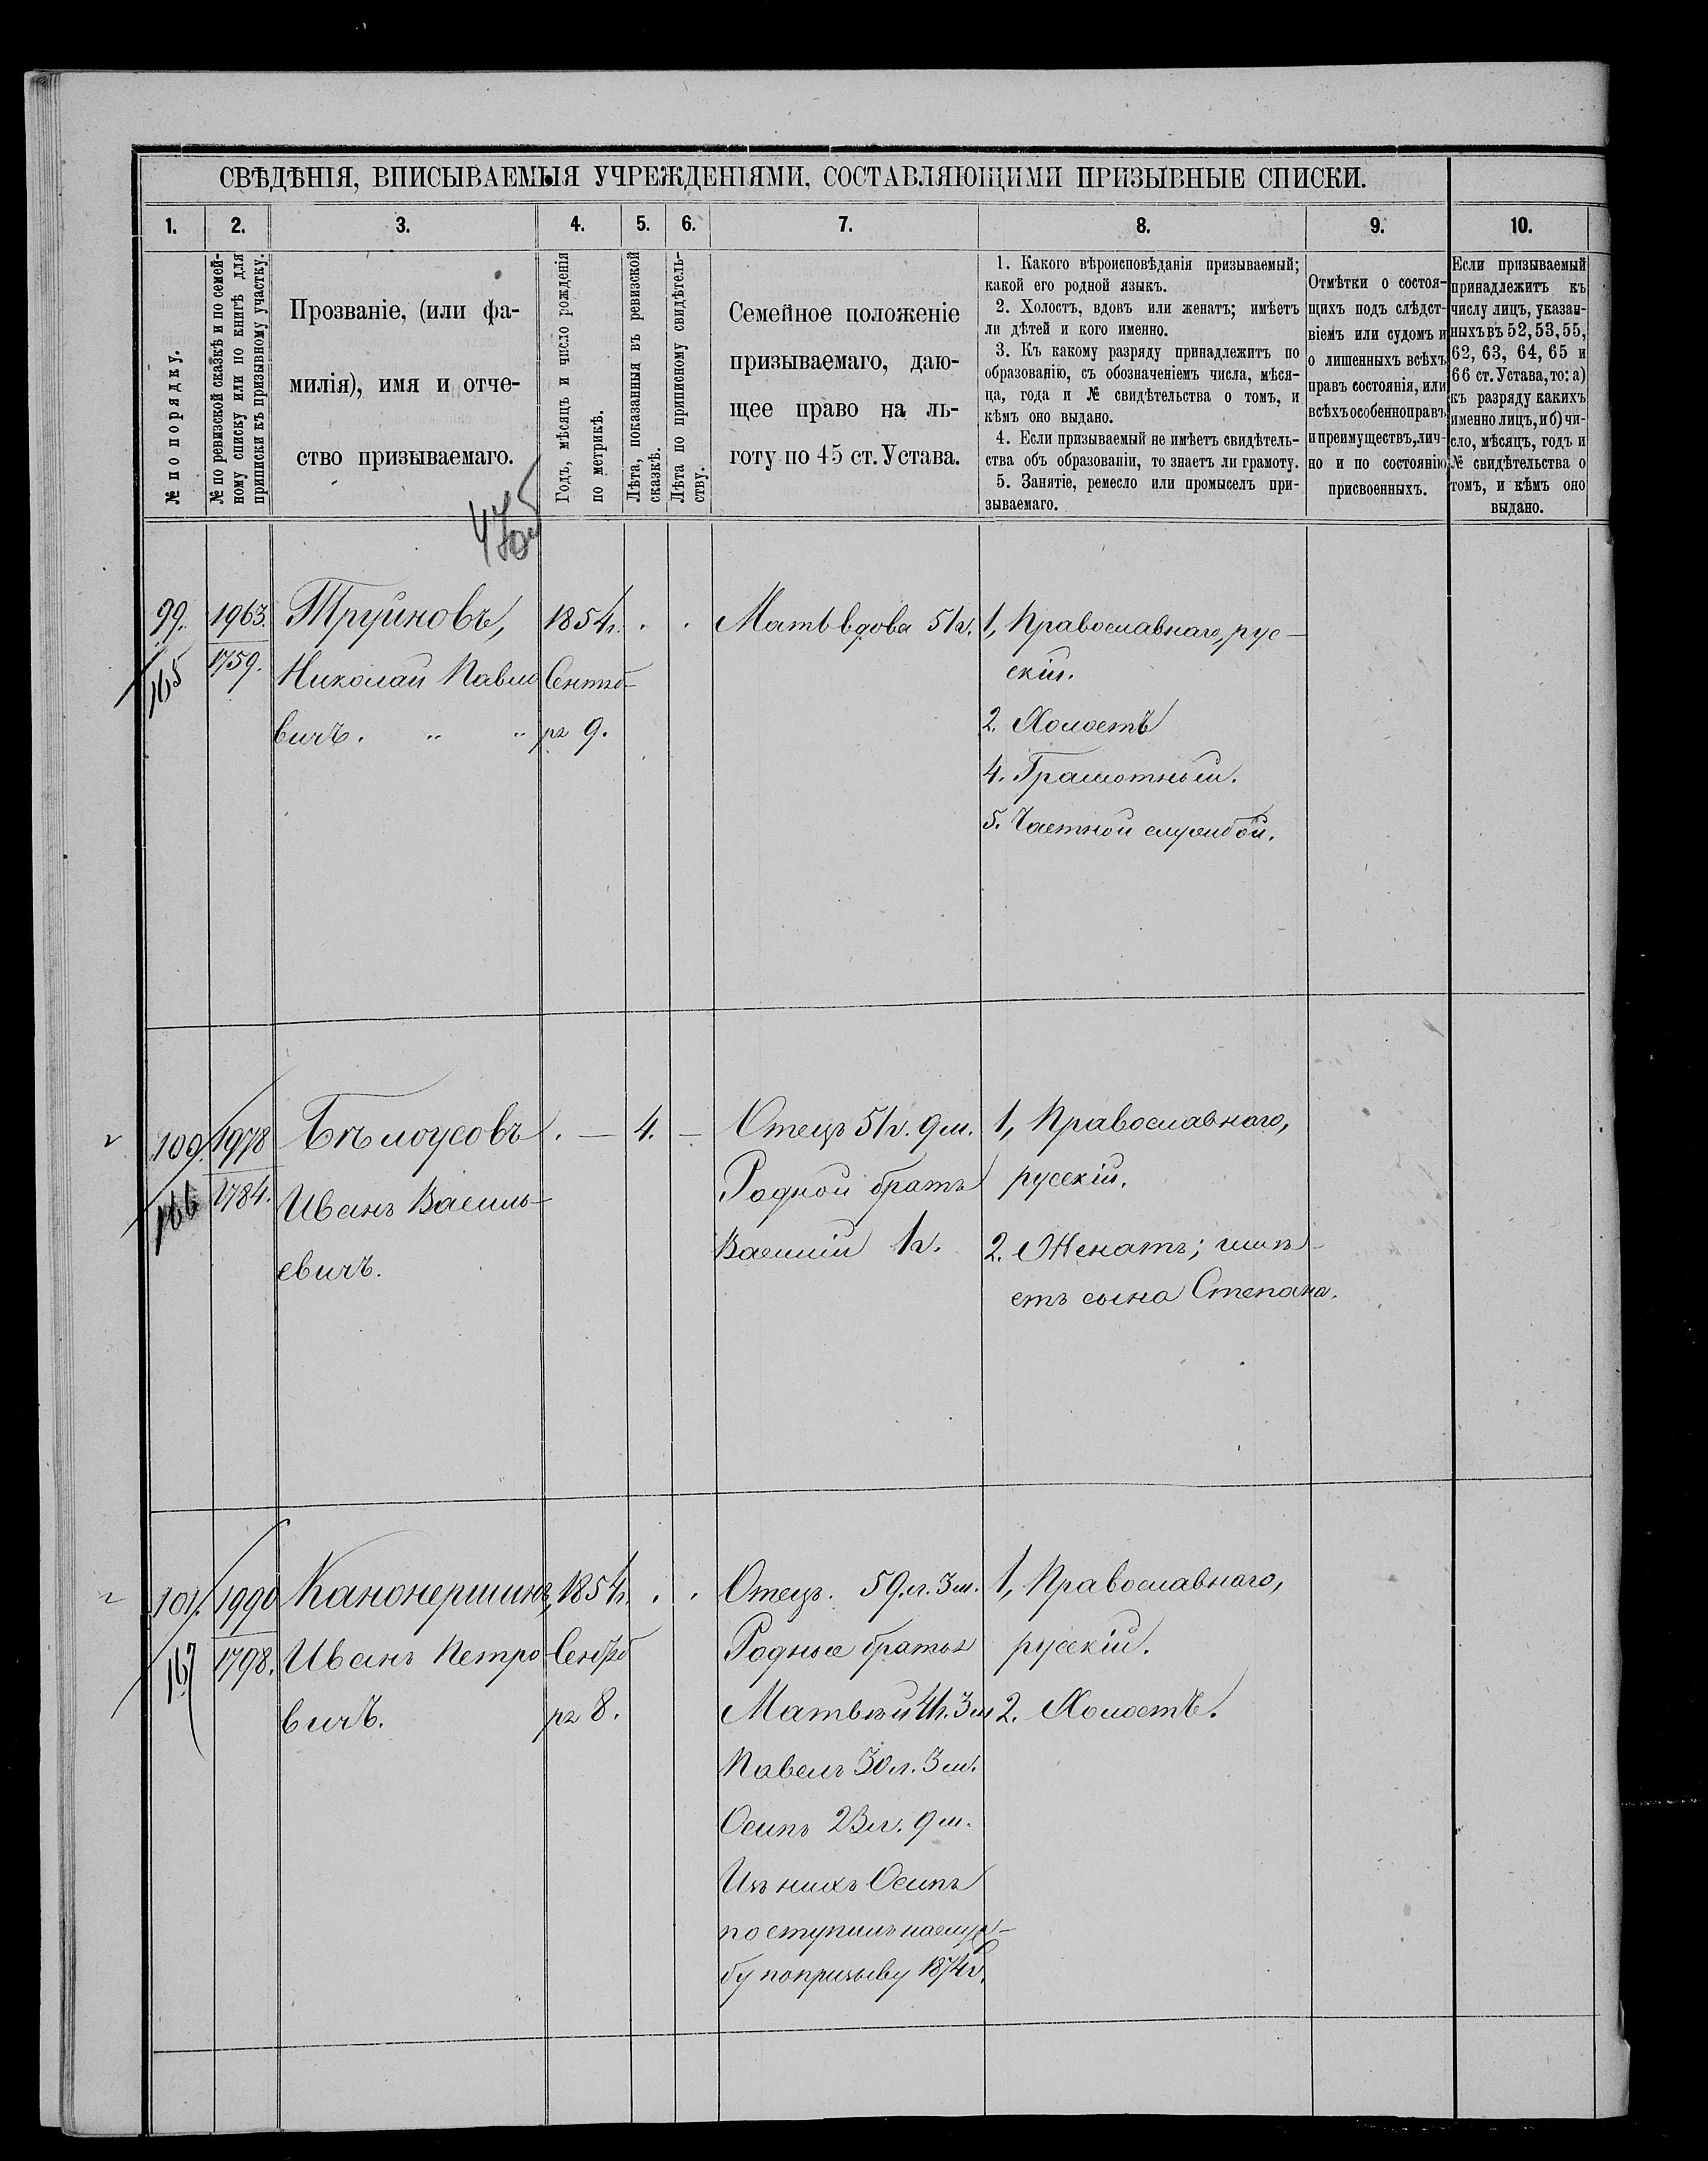 СВѢДѢНІЯ, ВПИСЫВАЕМЫЯ УЧРЕЖДЕНІЯМИ, СОСТАВЛЯЮЩИМИ ПРИЗЫВНЫЕ СПИСКИ.
1. 2. 3. 4. 5. 6. 7. 8. 9. 10.
№ по порядку.
№ по ревизской сказкѣ и по семей-
ному списку или по книгѣ для
приписки къ призывному участку.
Прозваніе, (или фа-
милія), имя и отче-
ство призываемаго.
Годъ, мѣсяцъ и число рожденія
по метрикѣ.
Лѣта, показанныя въ ревизской
сказкѣ.
Лѣта по приписному свидѣтель-
ству.
Семейное положеніе
призываемаго, даю-
щее право на ль-
готу по 45 ст. Устава.
1. Какого вѣроисповѣданія призываемый;
какой его родной языкъ.
2. Холостъ, вдовъ или женатъ; имѣетъ
ли дѣтей и кого именно.
3. Къ какому разряду принадлежитъ по
образованію, съ обозначеніемъ числа, мѣся-
ца, года и № свидѣтельства о томъ, и
кѣмъ оно выдано.
4. Если призываемый не имѣетъ свидѣтель-
ства объ образованіи, то знаетъ ли грамоту.
5. Занятіе, ремесло или промыселъ при-
зываемаго.
Отмѣтки о состоя-
щихъ подъ слѣдст-
віемъ или судомъ и
о лишенныхъ всѣхъ
правъ состоянія, или
всѣхъ особенноправъ
и преимуществъ, лич-
но и по состоянію
присвоенныхъ.
Если призываемый
принадлежитъ къ
числу лицъ, указан-
ныхъ въ 52, 53, 55,
62, 63, 64, 65 и
66 ст. Устава, то: а)
къ разряду какихъ
именно лицъ, и б) чи-
сло, мѣсяцъ, годъ и
№ свидѣтельства о
томъ, и кѣмъ оно
выдано.
99.
165
1963.
1759.
Труйновъ,
Николай Павло
вичъ. " "
1854г.
Сентяб-
ря 9.
Мать вдова 51г.
1, Православнаго, рус-
скій.
2. Холостъ
4. Грамотный.
5. Частной службой.
100.
166
1978
1784.
Бѣлоусовъ
Иванъ Василь-
евичъ.
. — 4. —
Отецъ 51г. 9м.
Родной братъ
Василій 1г.
1, Православнаго,
русскій.
2. Женатъ; имѣ-
етъ сына Степана.
101.
167
1990
1798.
Канонершинъ,
Иванъ Петро-
вичъ.
1854г.
Сентяб
ря 8.
Отецъ. 59.л. 3м.
Родные братья
Матвѣй 41г. 3м
Павелъ 30л. 3м.
Осипъ 23л. 9м.
Изъ нихъ Осипъ
поступилъ на служ-
бу по призыву 1874г.
1, Православнаго,
русскій.
2. Холостъ.